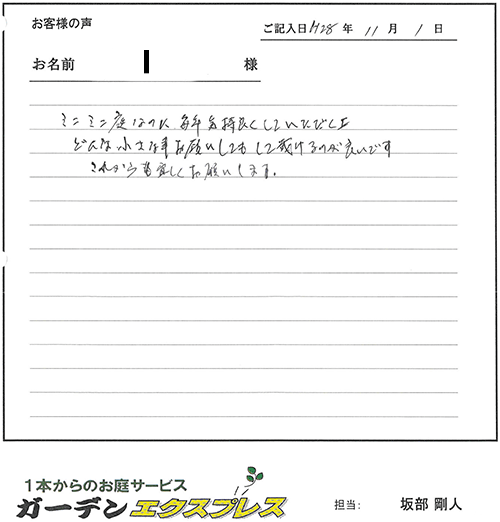 お客様の声
ご記入日 H28 年 11 月 1 日
お名前 様
ミニミニ庭なのに 毎年気持良くしていただく上
どんな小さな事お願いしても して戴けるのが良いです
これからも宜しくお願いします。
1本からのお庭サービス
ガーデンエクスプレス
担当: 坂部 剛人